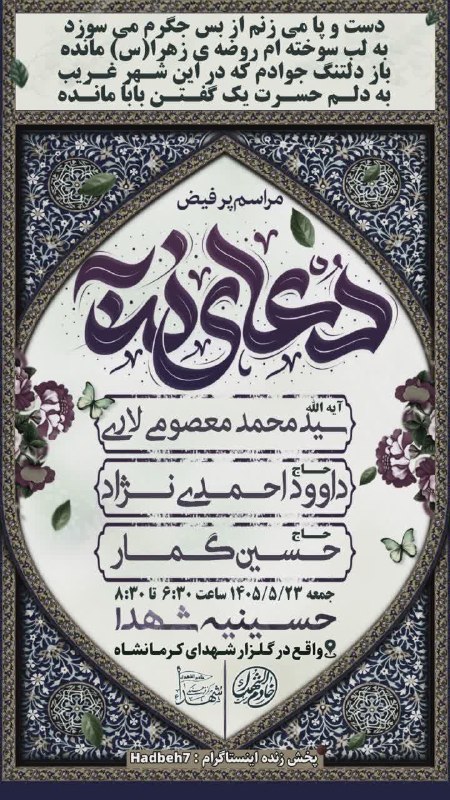 دست و پا می زنم از بس جگرم می سوزد
به لب سوخته ام روضه ی زهرا(س) مانده
باز دلتنگ جوادم که در این شهر غریب
به دلم حسرت یک گفتن بابا مانده
مراسم پر فیض
دعای ندبه
آیه الله
سید محمد معصومی لاری
حاج
داوود احمدی نژاد
حاج
حسین گمار
جمعه ۱۴۰۵/۵/۲۳ ساعت ۶:۳۰ تا ۸:۳۰
حسینیه شهدا
واقع در گلزار شهدای کرمانشاه
پخش زنده اینستاگرام : Hadbeh7